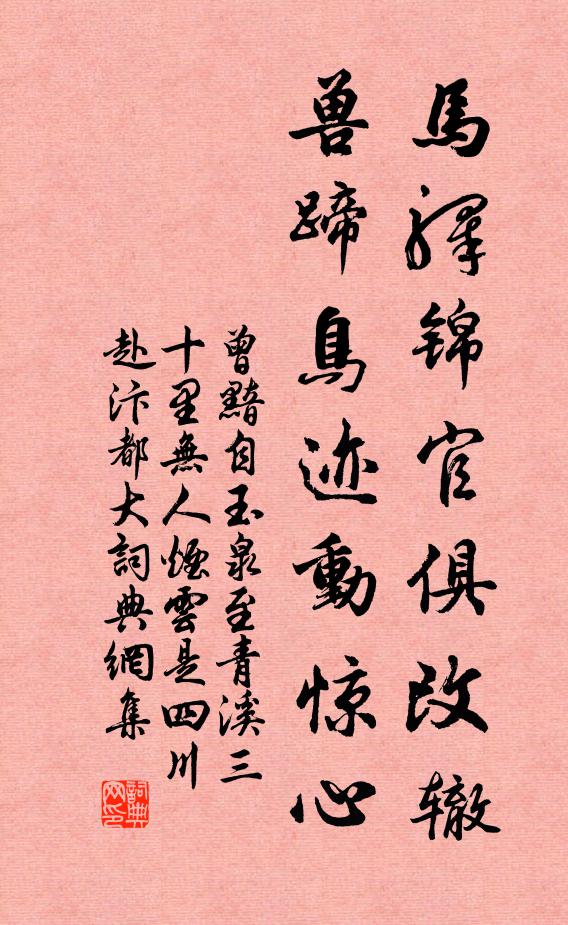 馬驛錦官俱改辙
兽蹄鳥迹動惊心
曾黯自玉泉至青溪三
十里無人煙雲是四川
赴汴都大詞典網集
詞典网印